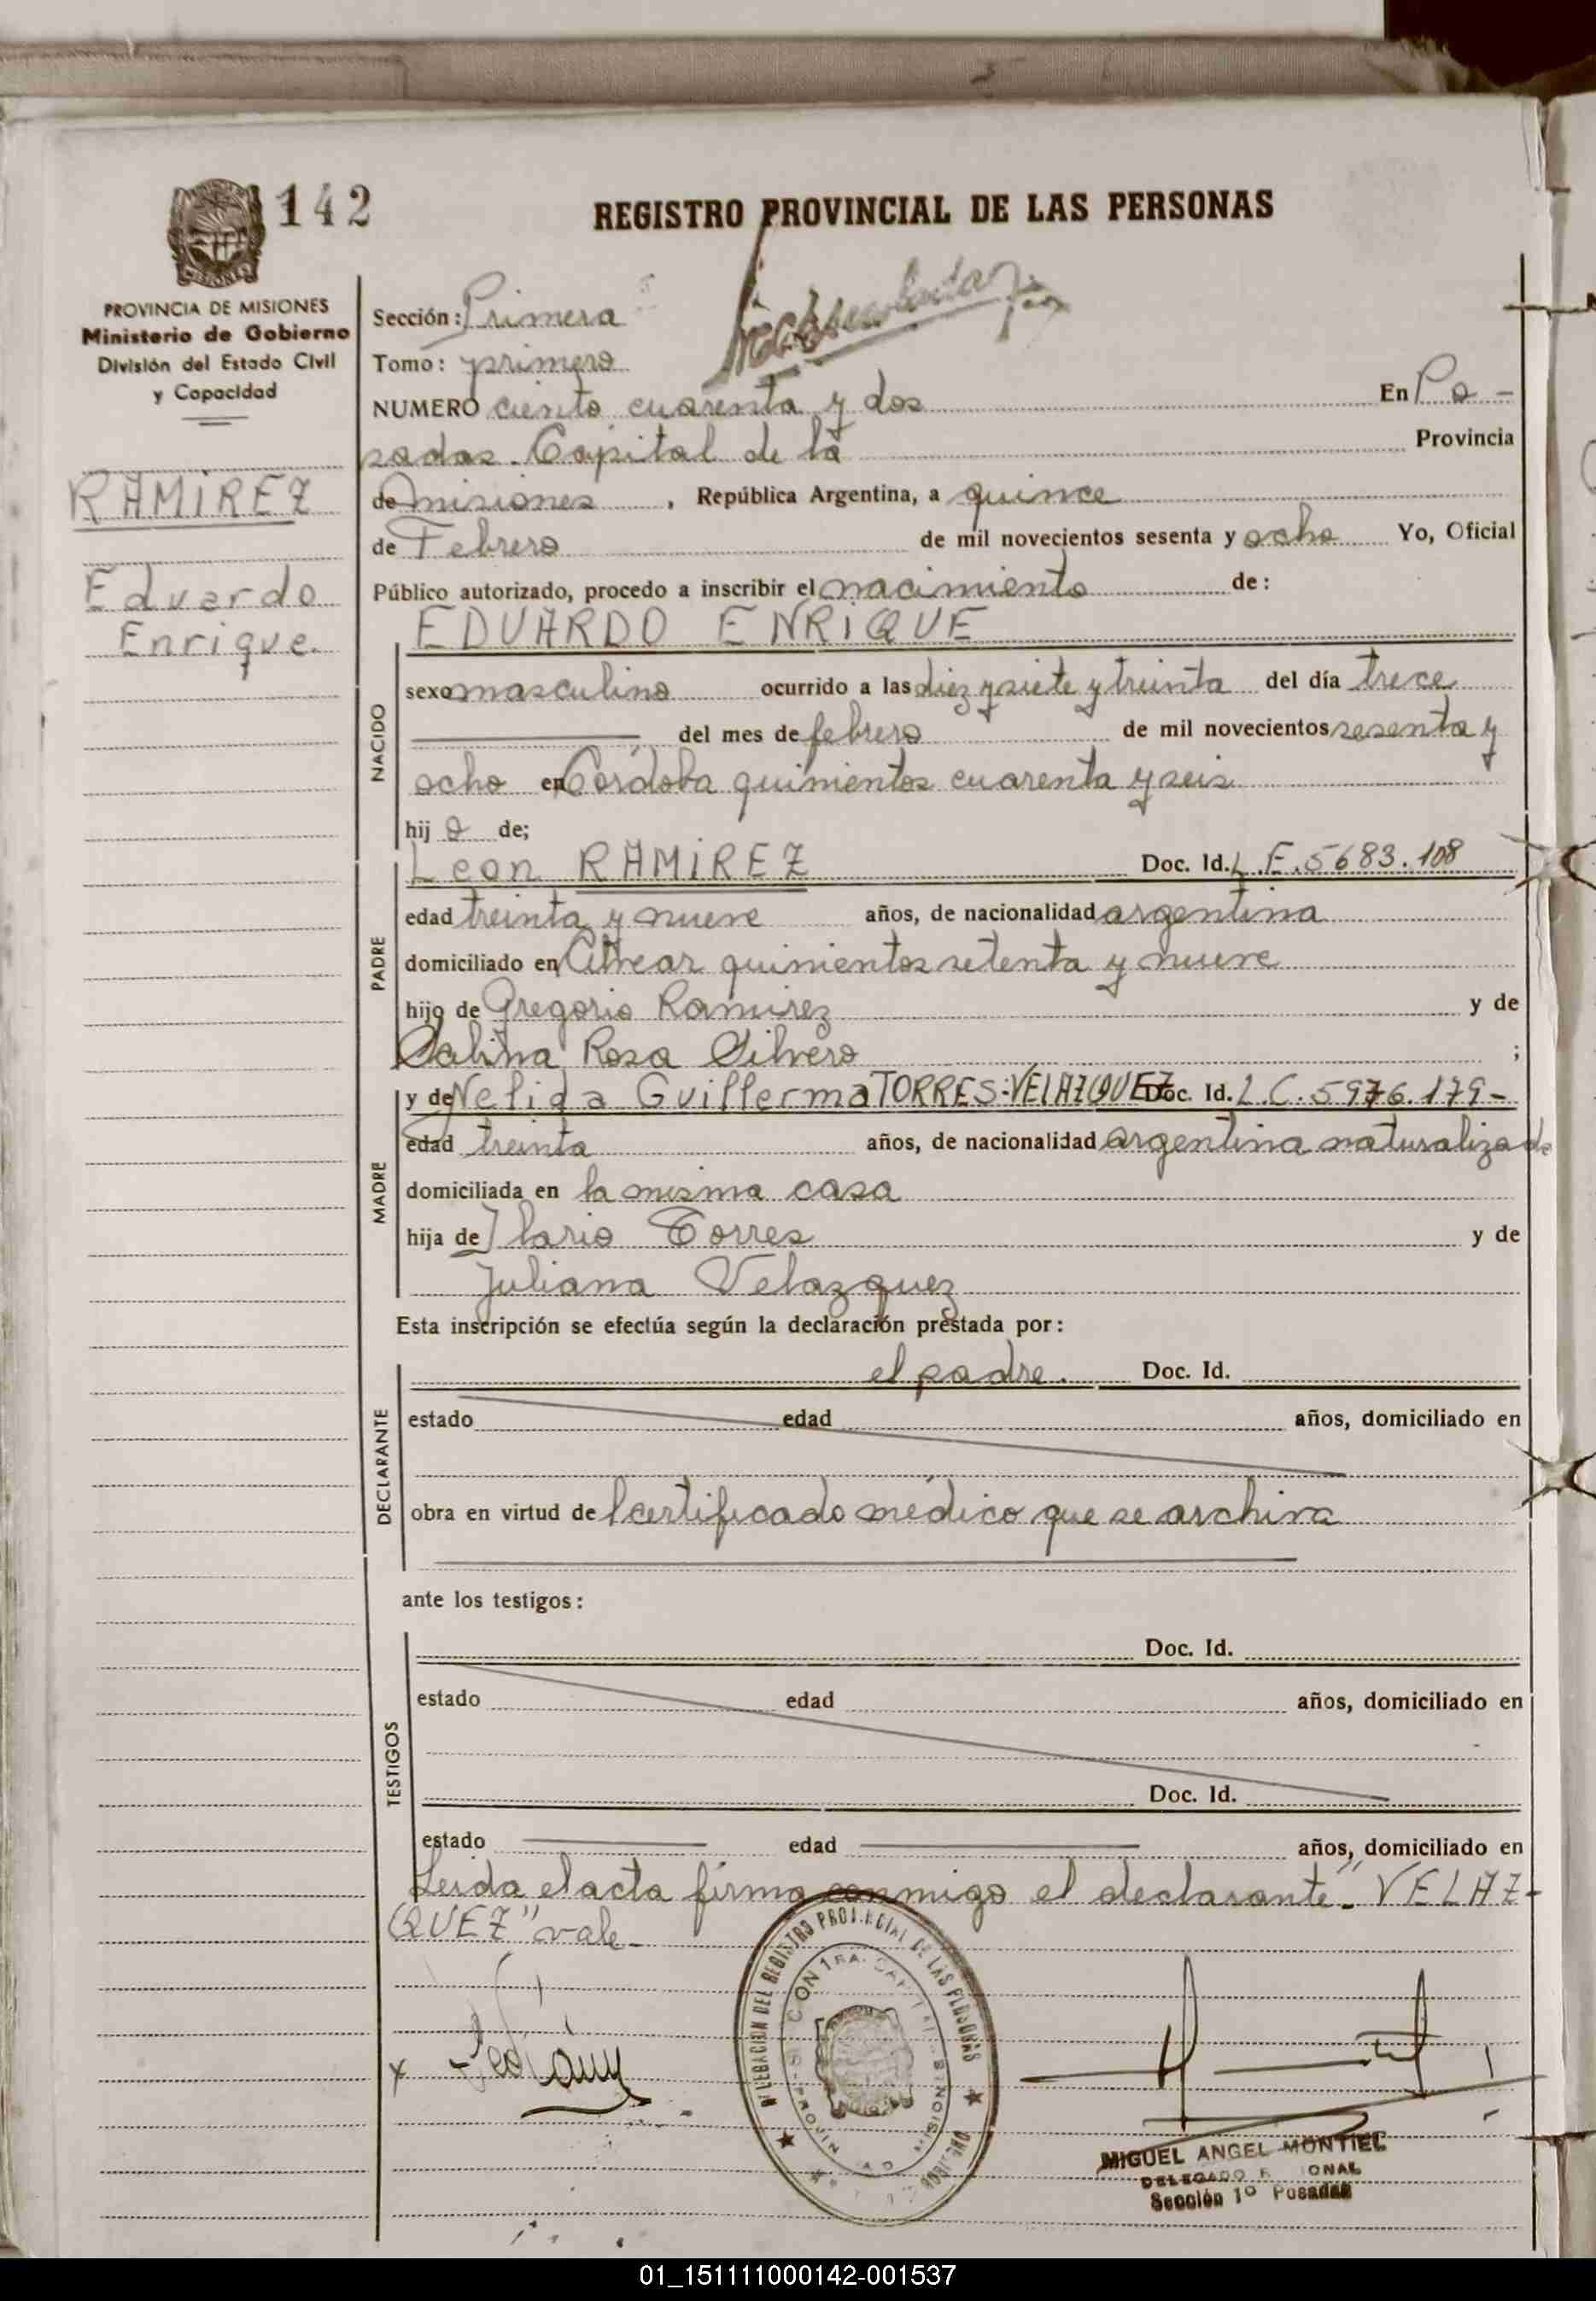 142
REGISTRO PROVINCIAL DE LAS PERSONAS
MISIONES
PROVINCIA DE MISIONES
Ministerio de Gobierno
División del Estado Civil
y Capacidad
RAMIREZ
Eduardo
Enrique.
Sección: Primera
Tomo: primero
NUMERO ciento cuarenta y dos En Po-
sadas. Capital de la Provincia
de misiones, República Argentina, a quince
de Febrero de mil novecientos sesenta y ocho Yo, Oficial
Público autorizado, procedo a inscribir el nacimiento de:
EDUARDO ENRIQUE
NACIDO
sexo masculino ocurrido a las diez y siete y treinta del día trece
del mes de febrero de mil novecientos sesenta y
ocho en Córdoba quinientos cuarenta y seis
hijo de;
PADRE
Leon RAMIREZ Doc. Id. L.E. 5683.108
edad treinta y nueve años, de nacionalidad argentina
domiciliado en Alvear quinientos setenta y nueve
hijo de Gregorio Ramirez y de
Sabina Rosa Silvero ;
MADRE
y de Nelida Guillerma TORRES-VELAZQUEZ Doc. Id. L.C. 5976.179-
edad treinta años, de nacionalidad argentina naturalizada
domiciliada en la misma casa
hija de Ilario Torres y de
Juliana Velazquez
Esta inscripción se efectúa según la declaración prestada por:
DECLARANTE
el padre. Doc. Id.
estado edad años, domiciliado en
obra en virtud de l certificado médico que se archiva
ante los testigos:
TESTIGOS
Doc. Id.
estado edad años, domiciliado en
Doc. Id.
estado edad años, domiciliado en
Leida el acta firma conmigo el declarante.- "VELAZ-
QUEZ" vale-
DELEGACION DEL REGISTRO PROVINCIAL DE LAS PERSONAS
MIGUEL ANGEL MONTIEL
DELEGADO
Sección 1º Posadas
01_151111000142-001537